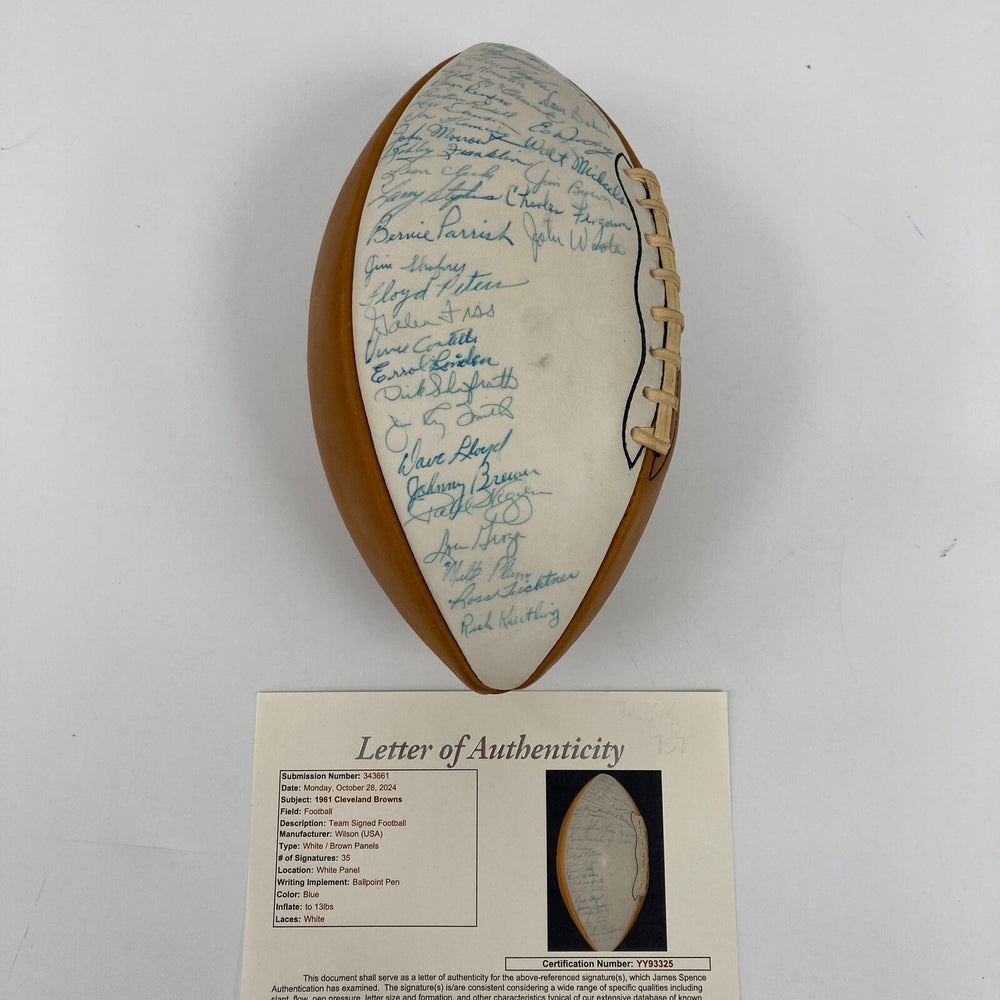 Dave Baker
Mike McCormack
Ray Renfro
John Morrow
Walt Michaels
Bobby Franklin
Jim Brown
Leon Clarke
Larry Stephens
Charles Ferguson
Bernie Parrish
John Wooten
Jim Shofner
Floyd Peters
Galen Fiss
Vince Costello
Errol Linden
Dick Schafrath
Jim Ray Smith
Dave Lloyd
Johnny Brewer
Paul Wiggin
Lou Groza
Milt Plum
Ross Fichtner
Rich Kreitling
Letter of Authenticity
Submission Number: 343661
Date: Monday, October 28, 2024
Subject: 1961 Cleveland Browns
Field: Football
Description: Team Signed Football
Manufacturer: Wilson (USA)
Type: White / Brown Panels
# of Signatures: 35
Location: White Panel
Writing Implement: Ballpoint Pen
Color: Blue
Inflate: to 13lbs
Laces: White
Certification Number: YY93325
This document shall serve as a letter of authenticity for the above-referenced signature(s), which James Spence
Authentication has examined. The signature(s) is/are consistent considering a wide range of specific qualities including
slant, flow, pen pressure, letter size and formation, and other characteristics typical of our extensive database of known